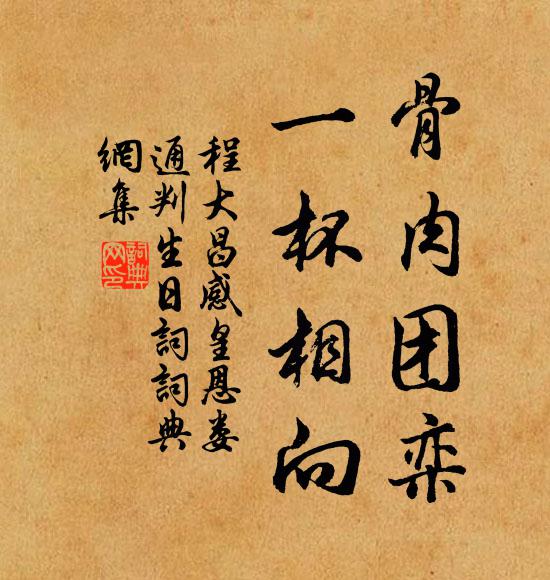 骨肉团栾
一杯相向
程大昌感皇恩娄
通判生日詞詞典
網集
詞典網印